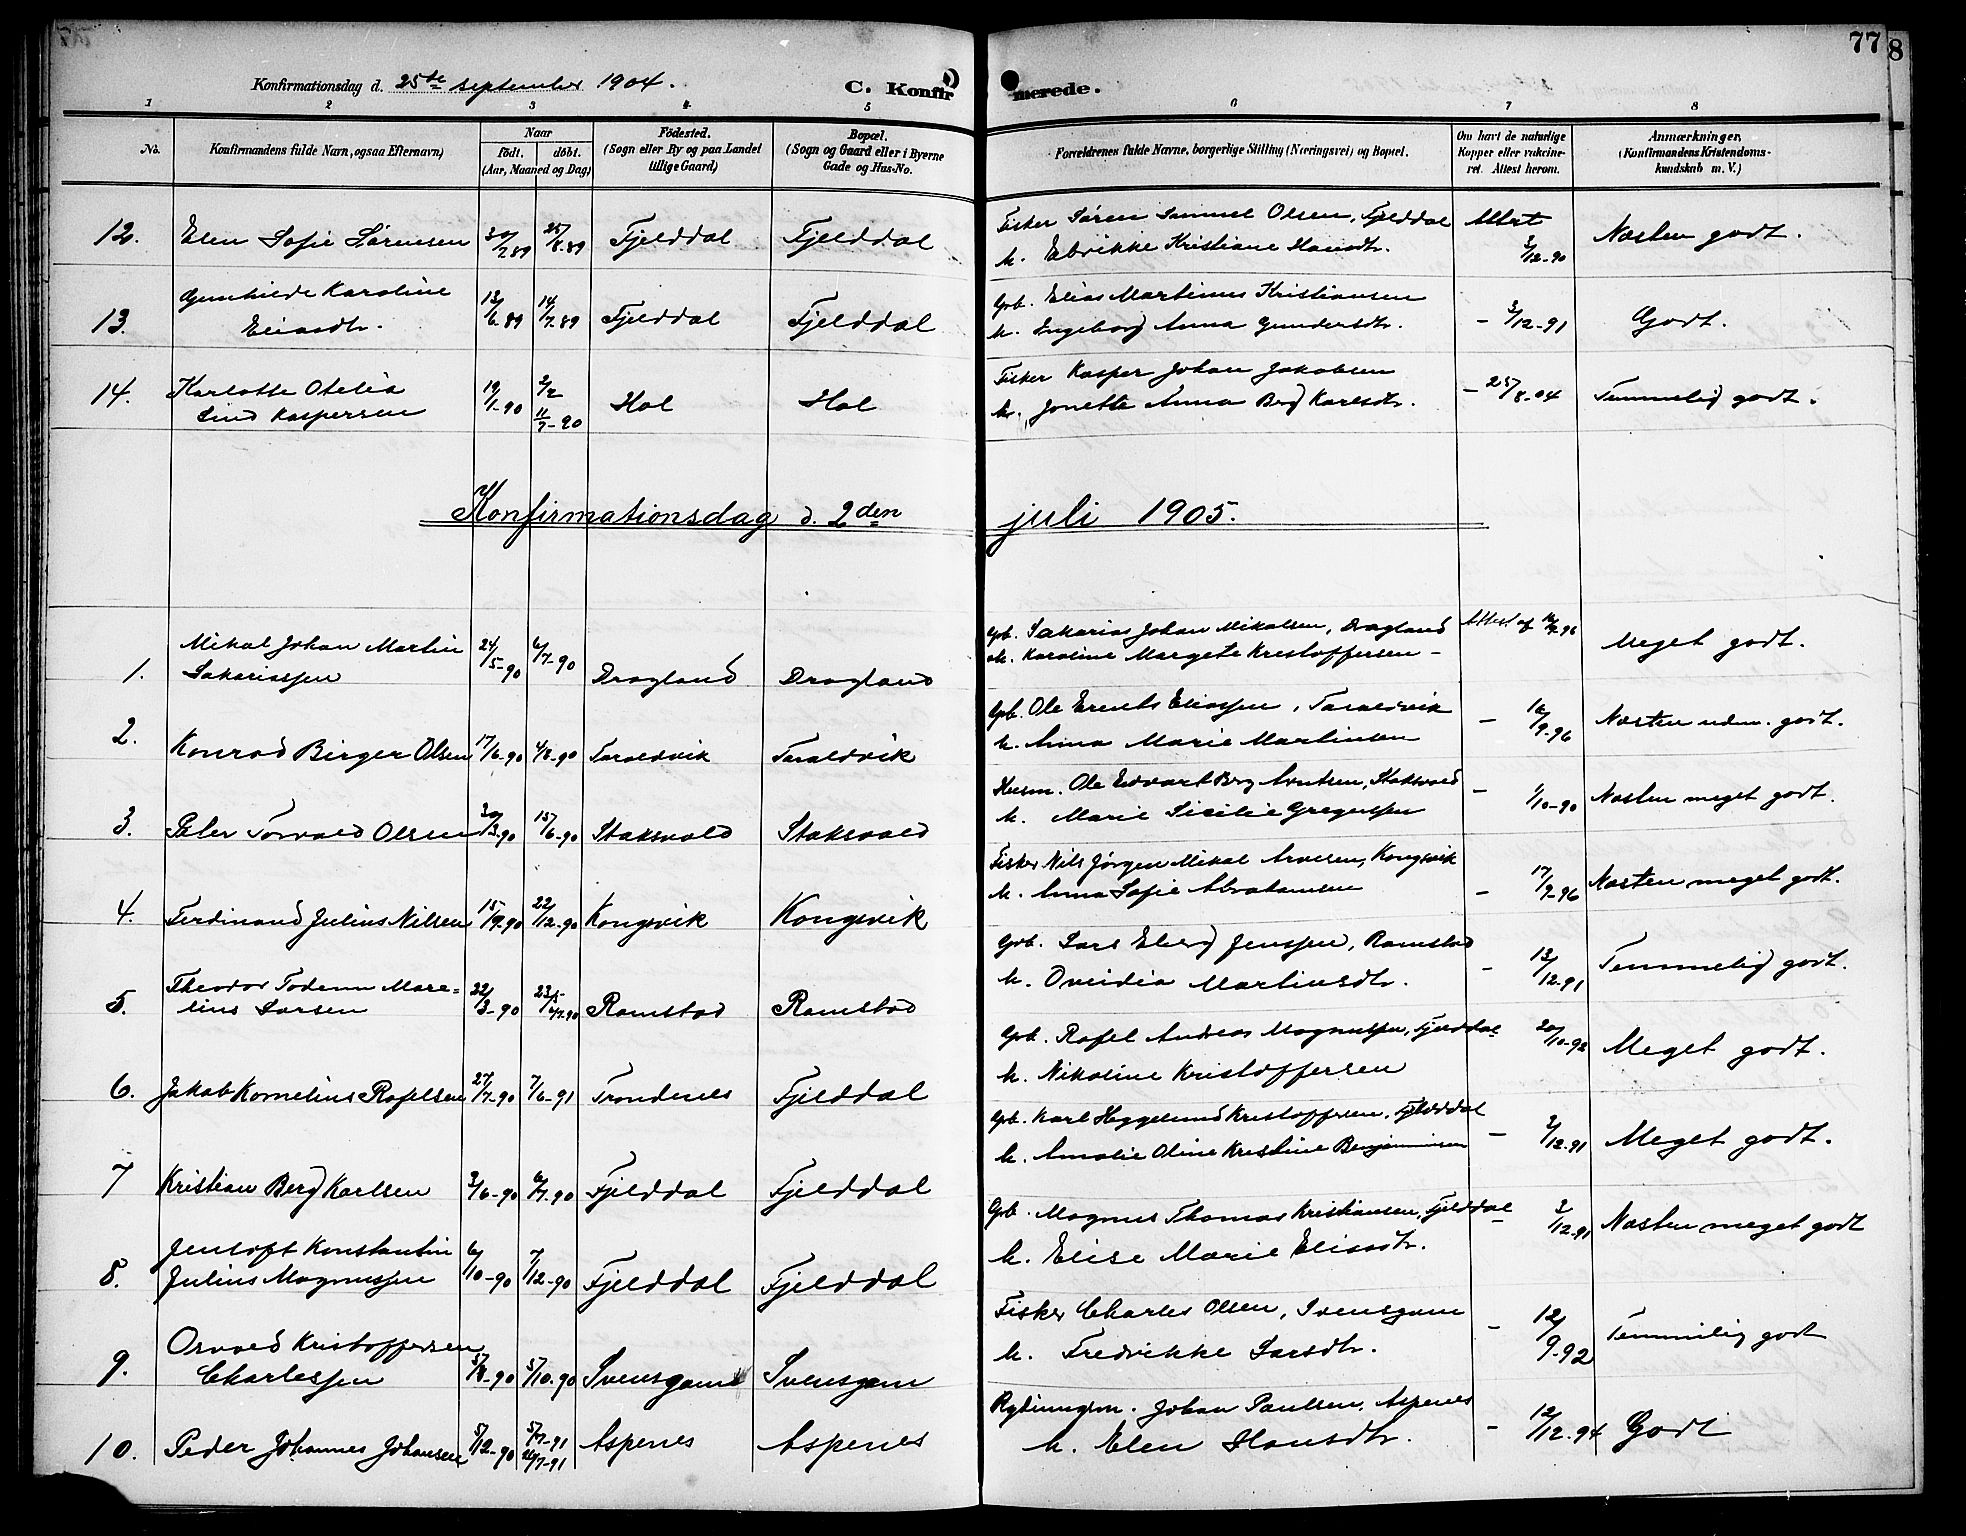 77
8
Konfirmationsdag d. 25de september 1904.
C. Konfirmerede.
1 2 3 4 5 6 7 8
No. Konfirmandens fulde Navn, ogsaa Efternavn)
Naar
födt. döbt.
(Aar, Maaned og Dag)
Födested.
(Sogn eller By og paa Landet
tillige Gaard)
Bopæl.
(Sogn og Gaard eller i Byerne
Gade og Hus-No.
Forældrenes fulde Navne, borgerlige Stilling (Næringsvei) og Bopæl.
Om havt de naturlige
Kopper eller vakcine-
ret. Attest herom.
Anmærkninger,
(Konfirmandens Kristendoms-
kundskab m. V.)
12. Elen Sofie Sørensen 25/8.89 Fjelddal Fjelddal
Fisker Søren Samuel Olsen, Fjelddal
h. Kristiane Hansdtr.
Attest 3/12-90 Næsten godt.
13. Gunhilde Karoline
Eliasdtr. 13/6.89 14/7.89 Fjelddal Fjelddal
Grb. Elias Martinus Kristiansen
h. Ingeborg Anna Gundersdtr.
- 3/12-91 Godt.
14. Karlotte Otelia
Lind Kaspersen 19/1-90 2/2 11/7-90 Hol Hol
Fisker Kasper Johan Jakobsen
h. Jonette Anna Berg Karlsdtr.
- 25/8-04 Temmelig godt.
Konfirmationsdag d. 2den juli 1905.
1. Mikal Johan Martin
Sakariassen 24/5-90 6/7-90 Dragland Dragland
Grb. Sakarias Johan Mikalsen, Dragland
h. Karoline Margrete Kristoffersen -
Attest af Meget godt.
2. Konrad Birger Olsen 17/6-90 4/8-90 Taraldvik Taraldvik
Grb. Ole Ernts Eliassen, Taraldvik
h. Anna Marie Martinsen
- 16/9-96 Næsten udm. godt.
3. Peler Torvald Olsen 30/3-90 15/6-90 Staksvold Staksvold
Husm. Ole Edvart Berg Arntsen, Staksvold
h. Marie Sicilie Gregussen
- 1/10-90 Næsten meget godt.
4. Ferdinand Julius Nilsen 15/9-90 22/12-90 Kongsvik Kongsvik
Fisker Nils Jørgen Mikal Arnesen, Kongsvik
h. Anna Sofie Abrahamsen
- 17/9-96 Næsten meget godt.
5. Theodor Todenn Mare=
lius Larsen 22/3-90 Ramstad Ramstad
Grb. Lars Eberg Jenssen, Ramstad
h. Oveidia Martinsdtr.
- 13/12-91 Temmelig godt.
6. Jakob Kornelius Rafelsen 27/7-90 7/6-91 Trondenes Fjelddal
Grb. Rafel Andreas Magnussen, Fjelddal
h. Nikoline Kristoffersen
- 20/10-92 Meget godt.
7 Kristian Berg Karlsen 3/6-90 6/7-90 Fjelddal Fjelddal
Grb. Karl Heggelund Kristoffersen, Fjelddal
h. Amalie Oline Kristine Benjaminsen
- 2/12-91 Meget godt.
8. Jentoft Konstantin
Julius Magnussen 6/10-90 7/12-90 Fjelddal Fjelddal
Grb. Magnus Thomas Kristiansen, Fjelddal
h. Elise Marie Eliasdtr.
- 2/12-91 Næsten meget godt
9. Osvald Kristoffersen
Charlessen 5/8-90 5/10-90 Svensgam Svensgam
Fisker Charles Olsen, Svensgam
h. Fredrikke Larsdtr.
- 12/9-92 Temmelig godt
10. Peder Johannes Johansen 5/12-90 5/7-91 26/7-91 Aspenes Aspenes
Rydningsm. Johan Paulsen, Aspenes
h. Elen Hansdtr.
- 12/12-94 Godt